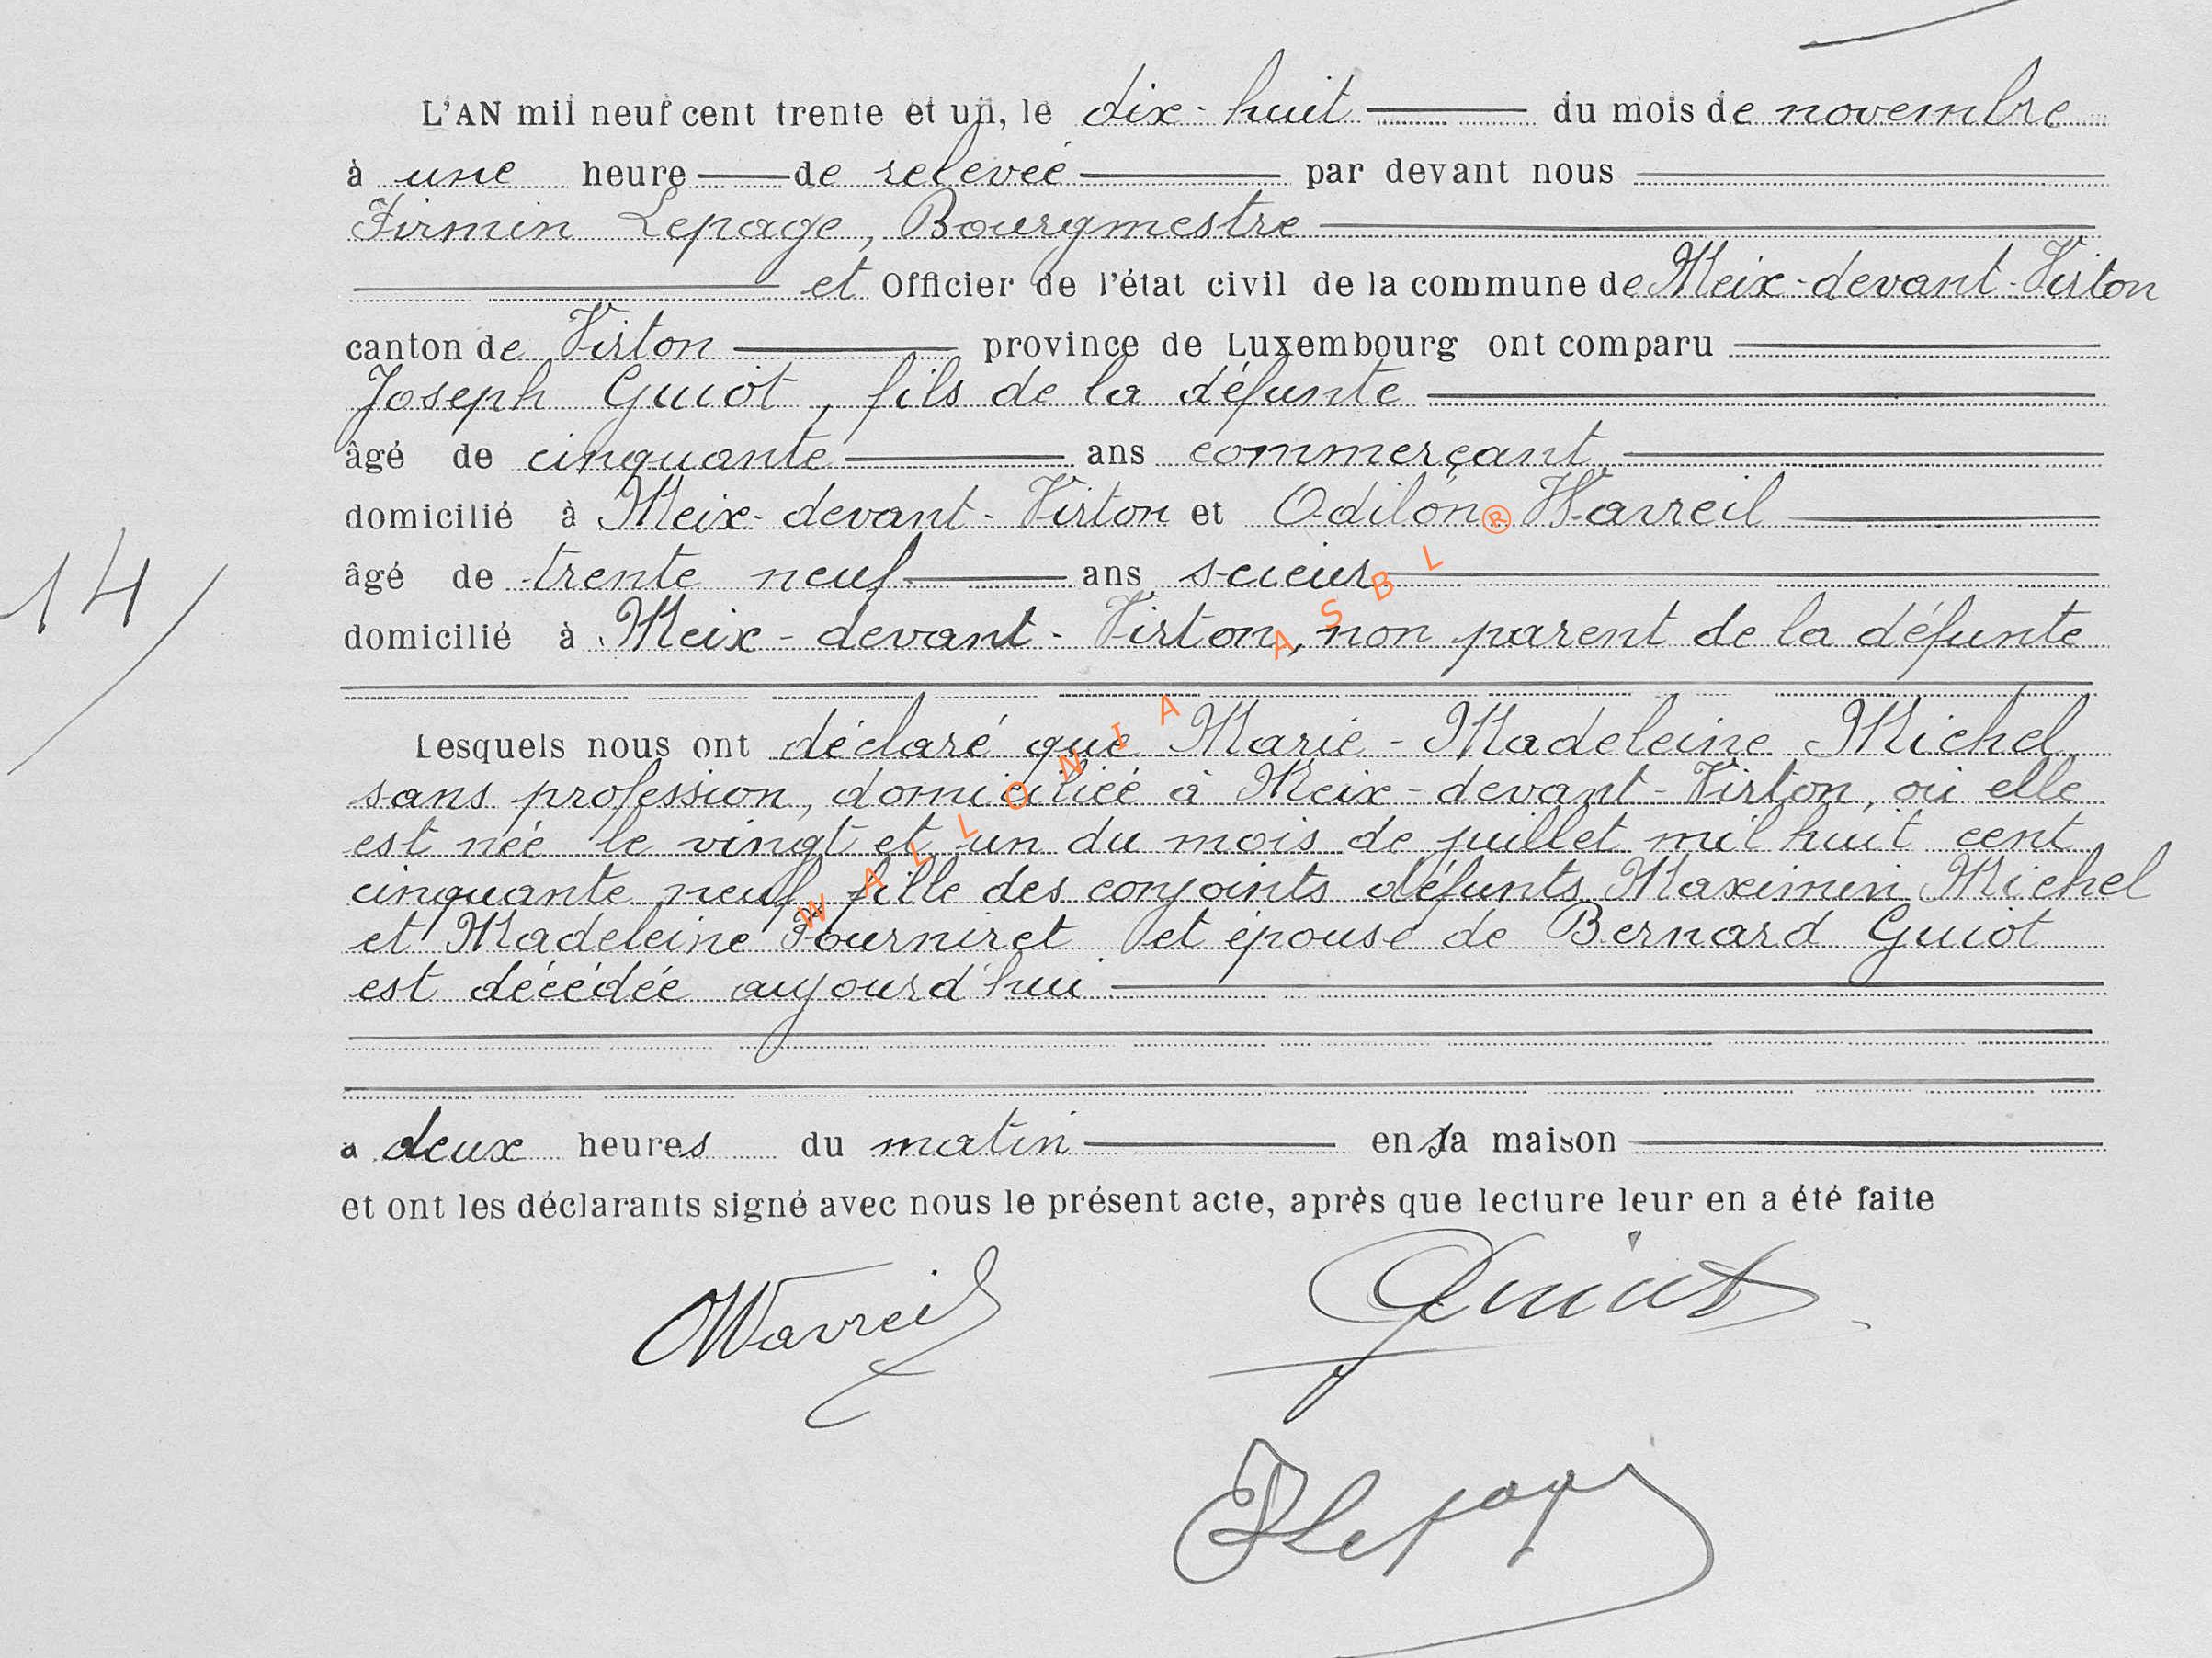 L'AN mil neuf cent trente et un, le dix-huit du mois de novembre
à une heure de relevée par devant nous
Firmin Lepage, Bourgmestre
et Officier de l'état civil de la commune de Meix-devant-Virton
canton de Virton province de Luxembourg ont comparu
Joseph Guiot, fils de la défunte
âgé de cinquante ans commerçant
domicilié à Meix-devant-Virton et Odilon Wavreil
âgé de trente neuf ans scieur
domicilié à Meix-devant-Virton, non parent de la défunte
14/
Lesquels nous ont déclaré que Marie-Madeleine Michel,
sans profession, domiciliée à Meix-devant-Virton, où elle
est née le vingt et un du mois de juillet mil huit cent
cinquante neuf, fille des conjoints défunts Maximin Michel
et Madeleine Fourniret et épouse de Bernard Guiot
est décédée aujourd'hui
à deux heures du matin en sa maison
et ont les déclarants signé avec nous le présent acte, après que lecture leur en a été faite
OWavreil
Guiot
FLepage
WALLONIA ASBL ®